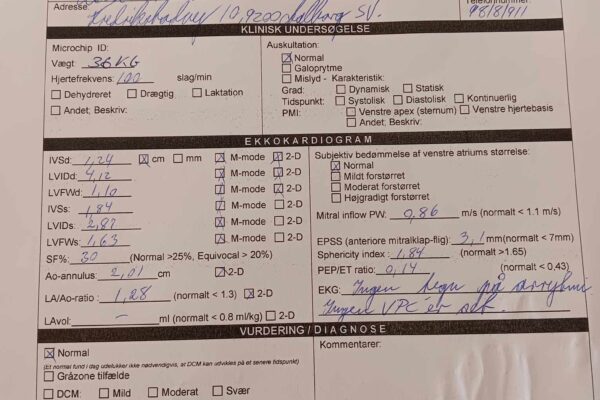 Adresse:
10, 9200 Aalborg SV.
98/8/911
KLINISK UNDERSØGELSE
Microchip ID:
Vægt 36 KG
Hjertefrekvens: 100 slag/min
Dehydreret Drægtig Laktation
Andet; Beskriv:
Auskultation:
Normal
Galoprytme
Mislyd - Karakteristik:
Grad: Dynamisk Statisk
Tidspunkt: Systolisk Diastolisk Kontinuerlig
PMI: Venstre apex (sternum) Venstre hjertebasis
Andet; Beskriv:
EKKOKARDIOGRAM
IVSd: 1,24 cm mm M-mode 2-D
LVIDd: 4,12 M-mode 2-D
LVFWd: 1,10 M-mode 2-D
IVSs: 1,84 M-mode 2-D
LVIDs: 2,87 M-mode 2-D
LVFWs: 1,63 M-mode 2-D
SF%: 30 (Normal >25%, Equivocal > 20%)
Ao-annulus: 2,01 cm 2-D
LA/Ao-ratio : 1,28 (normalt < 1.3) 2-D
LAvol: – ml (normalt < 0.8 ml/kg) 2-D
Subjektiv bedømmelse af venstre atriums størrelse:
Normal
Mildt forstørret
Moderat forstørret
Højgradigt forstørret
Mitral inflow PW: 0,86 m/s (normalt < 1.1 m/s)
EPSS (anteriore mitralklap-flig): 3,1 mm (normalt <7mm)
Sphericity index : 1,84 (normalt >1.65)
PEP/ET ratio: 0,14 (normalt < 0,43)
EKG: Ingen tegn på arrytmi.
Ingen VPC er set.
VURDERING / DIAGNOSE
Normal
(Et normal fund i dag udelukker ikke nødvendigvis, at DCM kan udvikles på et senere tidspunkt)
Gråzone tilfælde
DCM: Mild Moderat Svær
Kommentarer: